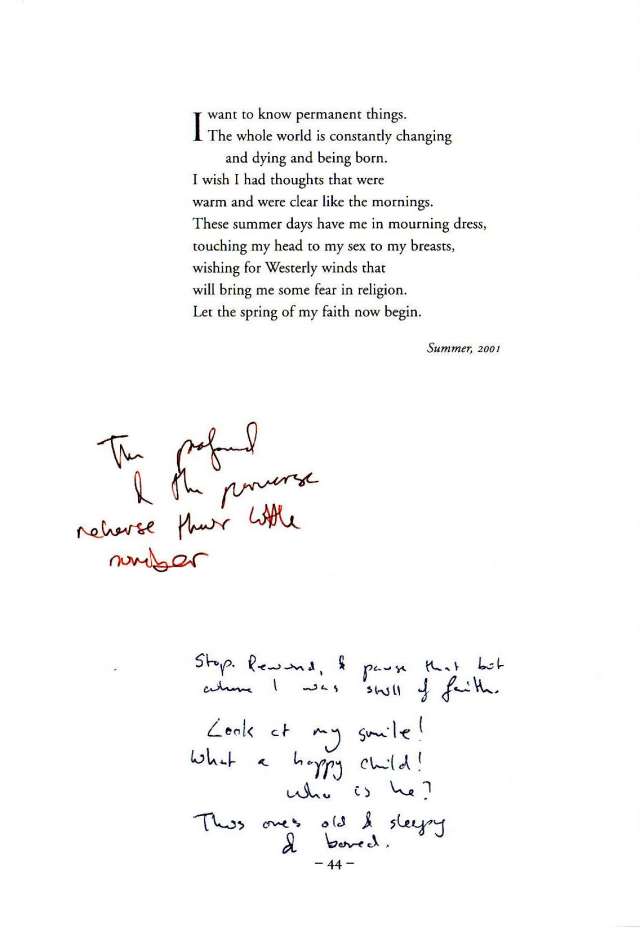 I want to know permanent things.
The whole world is constantly changing
and dying and being born.
I wish I had thoughts that were
warm and were clear like the mornings.
These summer days have me in mourning dress,
touching my head to my sex to my breasts,
wishing for Westerly winds that
will bring me some fear in religion.
Let the spring of my faith now begin.
Summer, 2001
The profound
& the perverse
reherse their little
number
Stop. Rewind, & pause that bit
where I was still of faith.
Look at my smile!
What a happy child!
Who is he?
This one's old & sleepy
& bored.
– 44 –